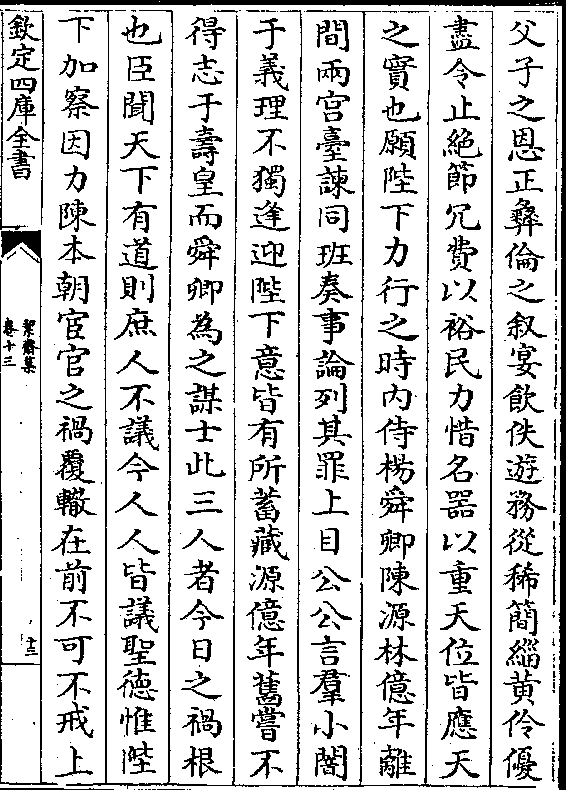 父子之恩正彞倫之叙宴飲佚遊務從稀簡緇黄伶優
盡令止絶節冗費以裕民力惜名器以重天位皆應天
之實也願陛下力行之時内侍楊舜卿陳源林億年離
間兩宫臺諫同班奏事論列其罪上目公公言羣小闇
于義理不獨逢迎陛下意皆有所蓄藏源億年舊嘗不
得志于壽皇而舜卿為之謀士此三人者今日之禍根
也臣聞天下有道則庶人不議今人人皆議聖徳惟陛
下加察因力陳本朝宦官之禍覆轍在前不可不戒上
欽定四庫全書
絜齋集
卷十三
十三